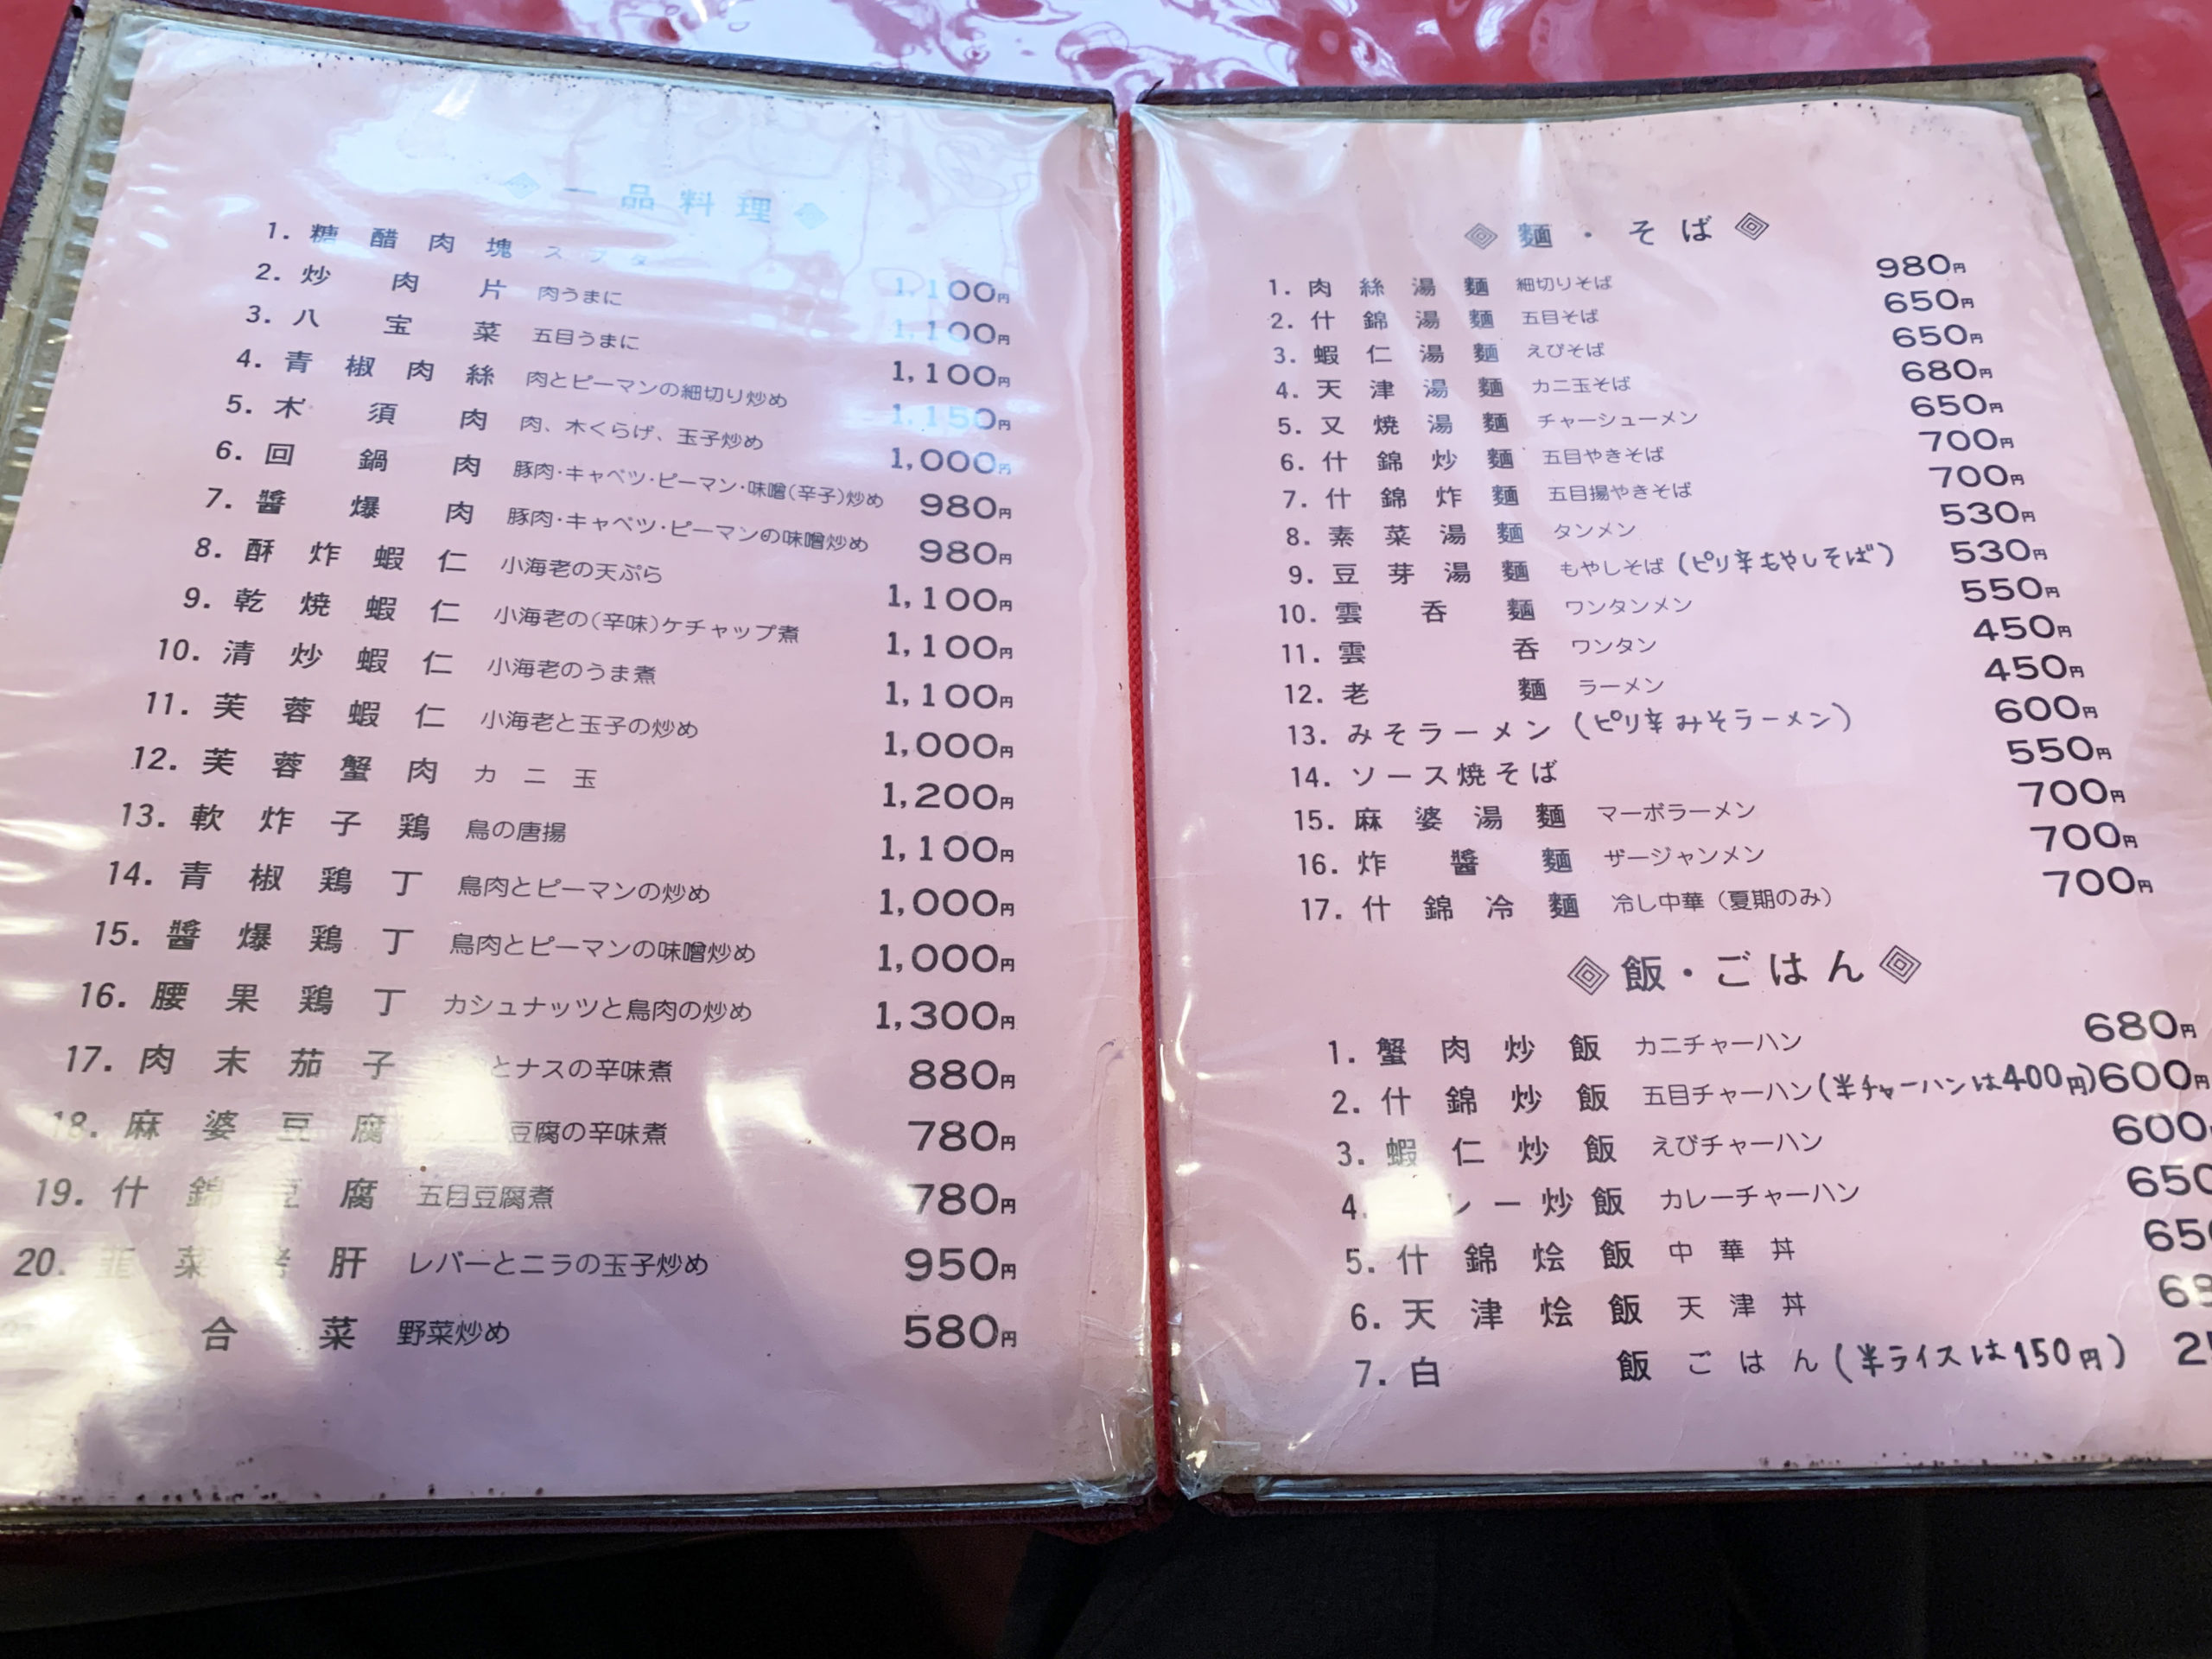 一品料理
1. 糖醋肉塊 スブタ 1,100円
2. 炒肉片 肉うまに 1,100円
3. 八宝菜 五目うまに 1,100円
4. 青椒肉絲 肉とピーマンの細切り炒め 1,150円
5. 木須肉 肉、木くらげ、玉子炒め 1,000円
6. 回鍋肉 豚肉・キャベツ・ピーマン・味噌(辛子)炒め 980円
7. 醬爆肉 豚肉・キャベツ・ピーマンの味噌炒め 980円
8. 酥炸蝦仁 小海老の天ぷら 1,100円
9. 乾焼蝦仁 小海老の(辛味)ケチャップ煮 1,100円
10. 清炒蝦仁 小海老のうま煮 1,100円
11. 芙蓉蝦仁 小海老と玉子の炒め 1,000円
12. 芙蓉蟹肉 カニ玉 1,200円
13. 軟炸子鶏 鳥の唐揚 1,100円
14. 青椒鶏丁 鳥肉とピーマンの炒め 1,000円
15. 醬爆鶏丁 鳥肉とピーマンの味噌炒め 1,000円
16. 腰果鶏丁 カシュナッツと鳥肉の炒め 1,300円
17. 肉末茄子 とナスの辛味煮 880円
18. 麻婆豆腐 豆腐の辛味煮 780円
19. 什錦豆腐 五目豆腐煮 780円
20. 韮菜 肝 レバーとニラの玉子炒め 950円
合菜 野菜炒め 580円
麵・そば
1. 肉絲湯麵 細切りそば 980円
2. 什錦湯麵 五目そば 650円
3. 蝦仁湯麵 えびそば 650円
4. 天津湯麵 カニ玉そば 680円
5. 叉焼湯麵 チャーシューメン 650円
6. 什錦炒麵 五目やきそば 700円
7. 什錦炸麵 五目揚やきそば 700円
8. 素菜湯麵 タンメン 530円
9. 豆芽湯麵 もやしそば (ピリ辛もやしそば) 530円
10. 雲呑麵 ワンタンメン 550円
11. 雲呑 ワンタン 450円
12. 老麵 ラーメン 450円
13. みそラーメン (ピリ辛みそラーメン) 600円
14. ソース焼そば 550円
15. 麻婆湯麵 マーボラーメン 700円
16. 炸醬麵 ザージャンメン 700円
17. 什錦冷麵 冷し中華(夏期のみ) 700円
飯・ごはん
1. 蟹肉炒飯 カニチャーハン 680円
2. 什錦炒飯 五目チャーハン (半チャーハンは400円) 600円
3. 蝦仁炒飯 えびチャーハン 600
4. レー炒飯 カレーチャーハン 650
5. 什錦烩飯 中華丼
6. 天津烩飯 天津丼
7. 白飯 ごはん (半ライスは150円)